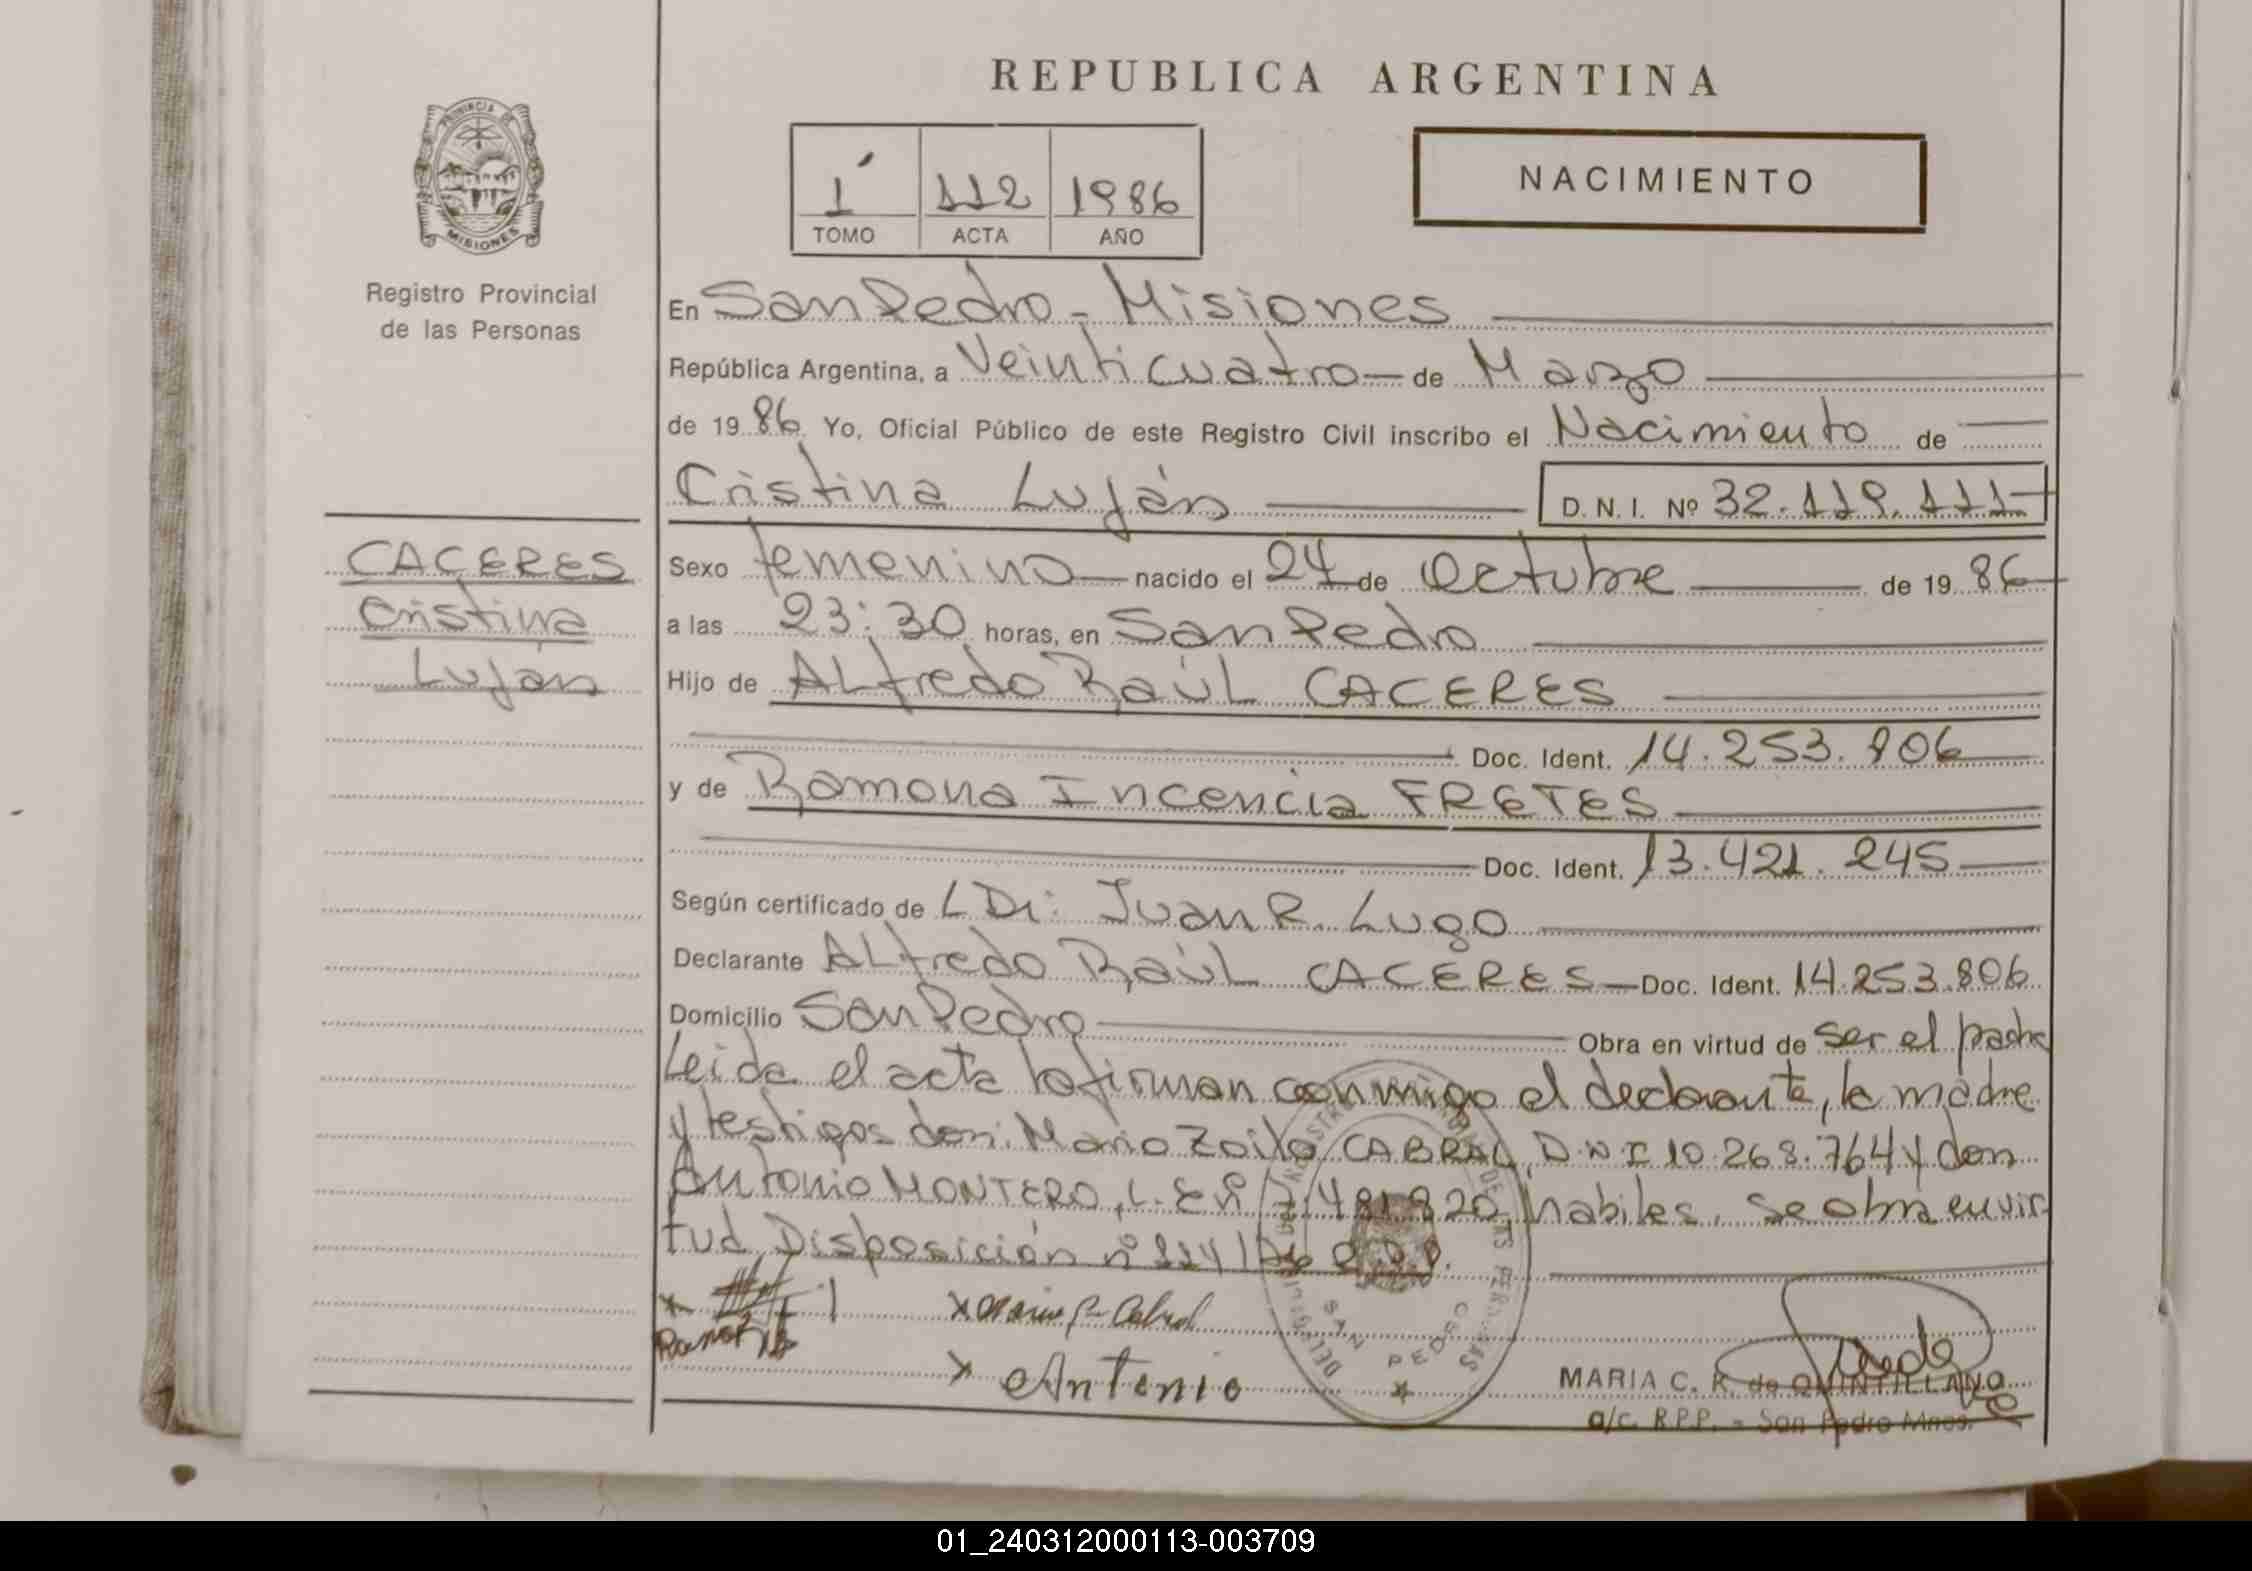 REPUBLICA ARGENTINA
PROVINCIA DE
MISIONES
Registro Provincial
de las Personas
1 112 1986
TOMO ACTA AÑO
NACIMIENTO
En San Pedro - Misiones
República Argentina, a Veinticuatro de Marzo
de 1986 Yo, Oficial Público de este Registro Civil inscribo el Nacimiento de
Cristina Luján D. N. I. Nº 32.119.111
CACERES
Cristina
Luján
Sexo femenino nacido el 24 de Octubre de 1986
a las 23:30 horas, en San Pedro
Hijo de ALfredo Raúl CACERES
Doc. Ident. 14.253.806
y de Ramona Incencia FRETES
Doc. Ident. 13.421.245
Según certificado de LDi: Juan R. Lugo
Declarante ALfredo Raúl CACERES Doc. Ident. 14.253.806
Domicilio San Pedro Obra en virtud de ser el padre
Leida el acta la firman conmigo el declarante, la madre
y testigos don: Mario Zoilo CABRAL, D.N.I 10.268.764 y don
Antonio MONTERO, L.E.Nº 7.481.820, habiles. Se obra en vir-
tud Disposición nº 224/
Antonio
SAN PEDRO
MARIA C. R. de QUINTILLANO
a/c. R.P.P. - San Pedro Mnes.
01_240312000113-003709